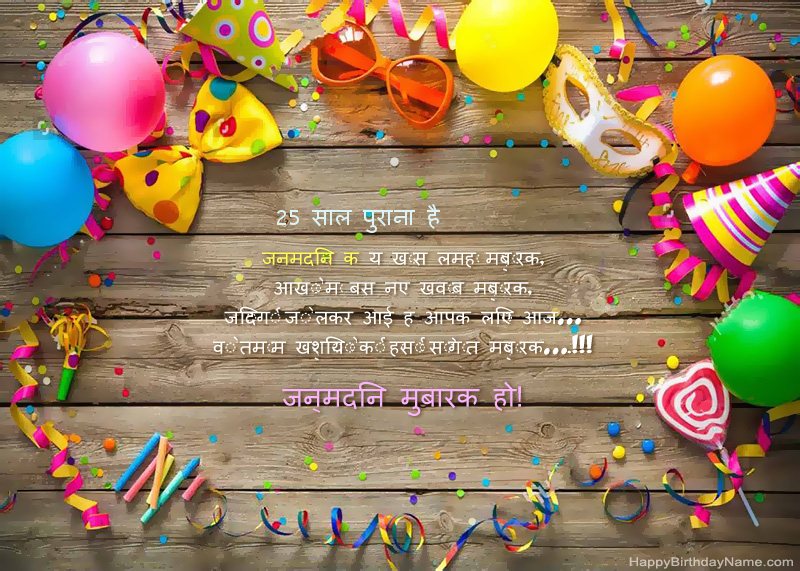 25 साल पुराना है
जनमदनि क य खास लमहा मबारक,
आखो म बस नए खवाब मबारक,
जदिगी जो लेकर आई ह आपक लएि आज...
वो तमाम खशयिो की हसी सोगात मबारक...!!!
जन्मदनि मुबारक हो!
HappyBirthdayName.com